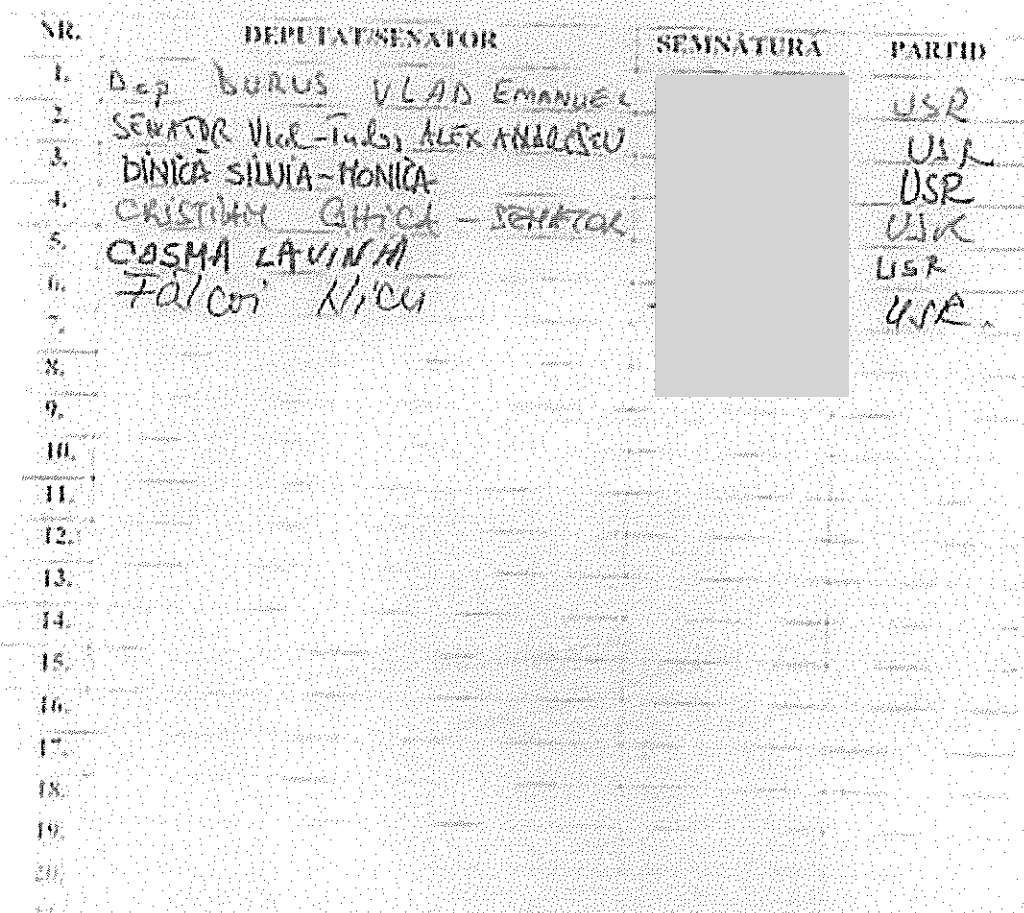 NR. DEPUTAT/SENATOR SEMNĂTURĂ PARTID
1. Dep BURUS VLAD EMANUEL USR
2. SENATOR Vlad-Tudor ALEXANDRESCU USR
3. DINICĂ SILVIA-MONICA USR
4. CRISTIAN GHICA - SENATOR USR
5. COSMA LAVINIA USR
6. Fălcoi Nicu USR.
7.
8.
9.
10.
11.
12.
13.
14.
15.
16.
17.
18.
19.
20.